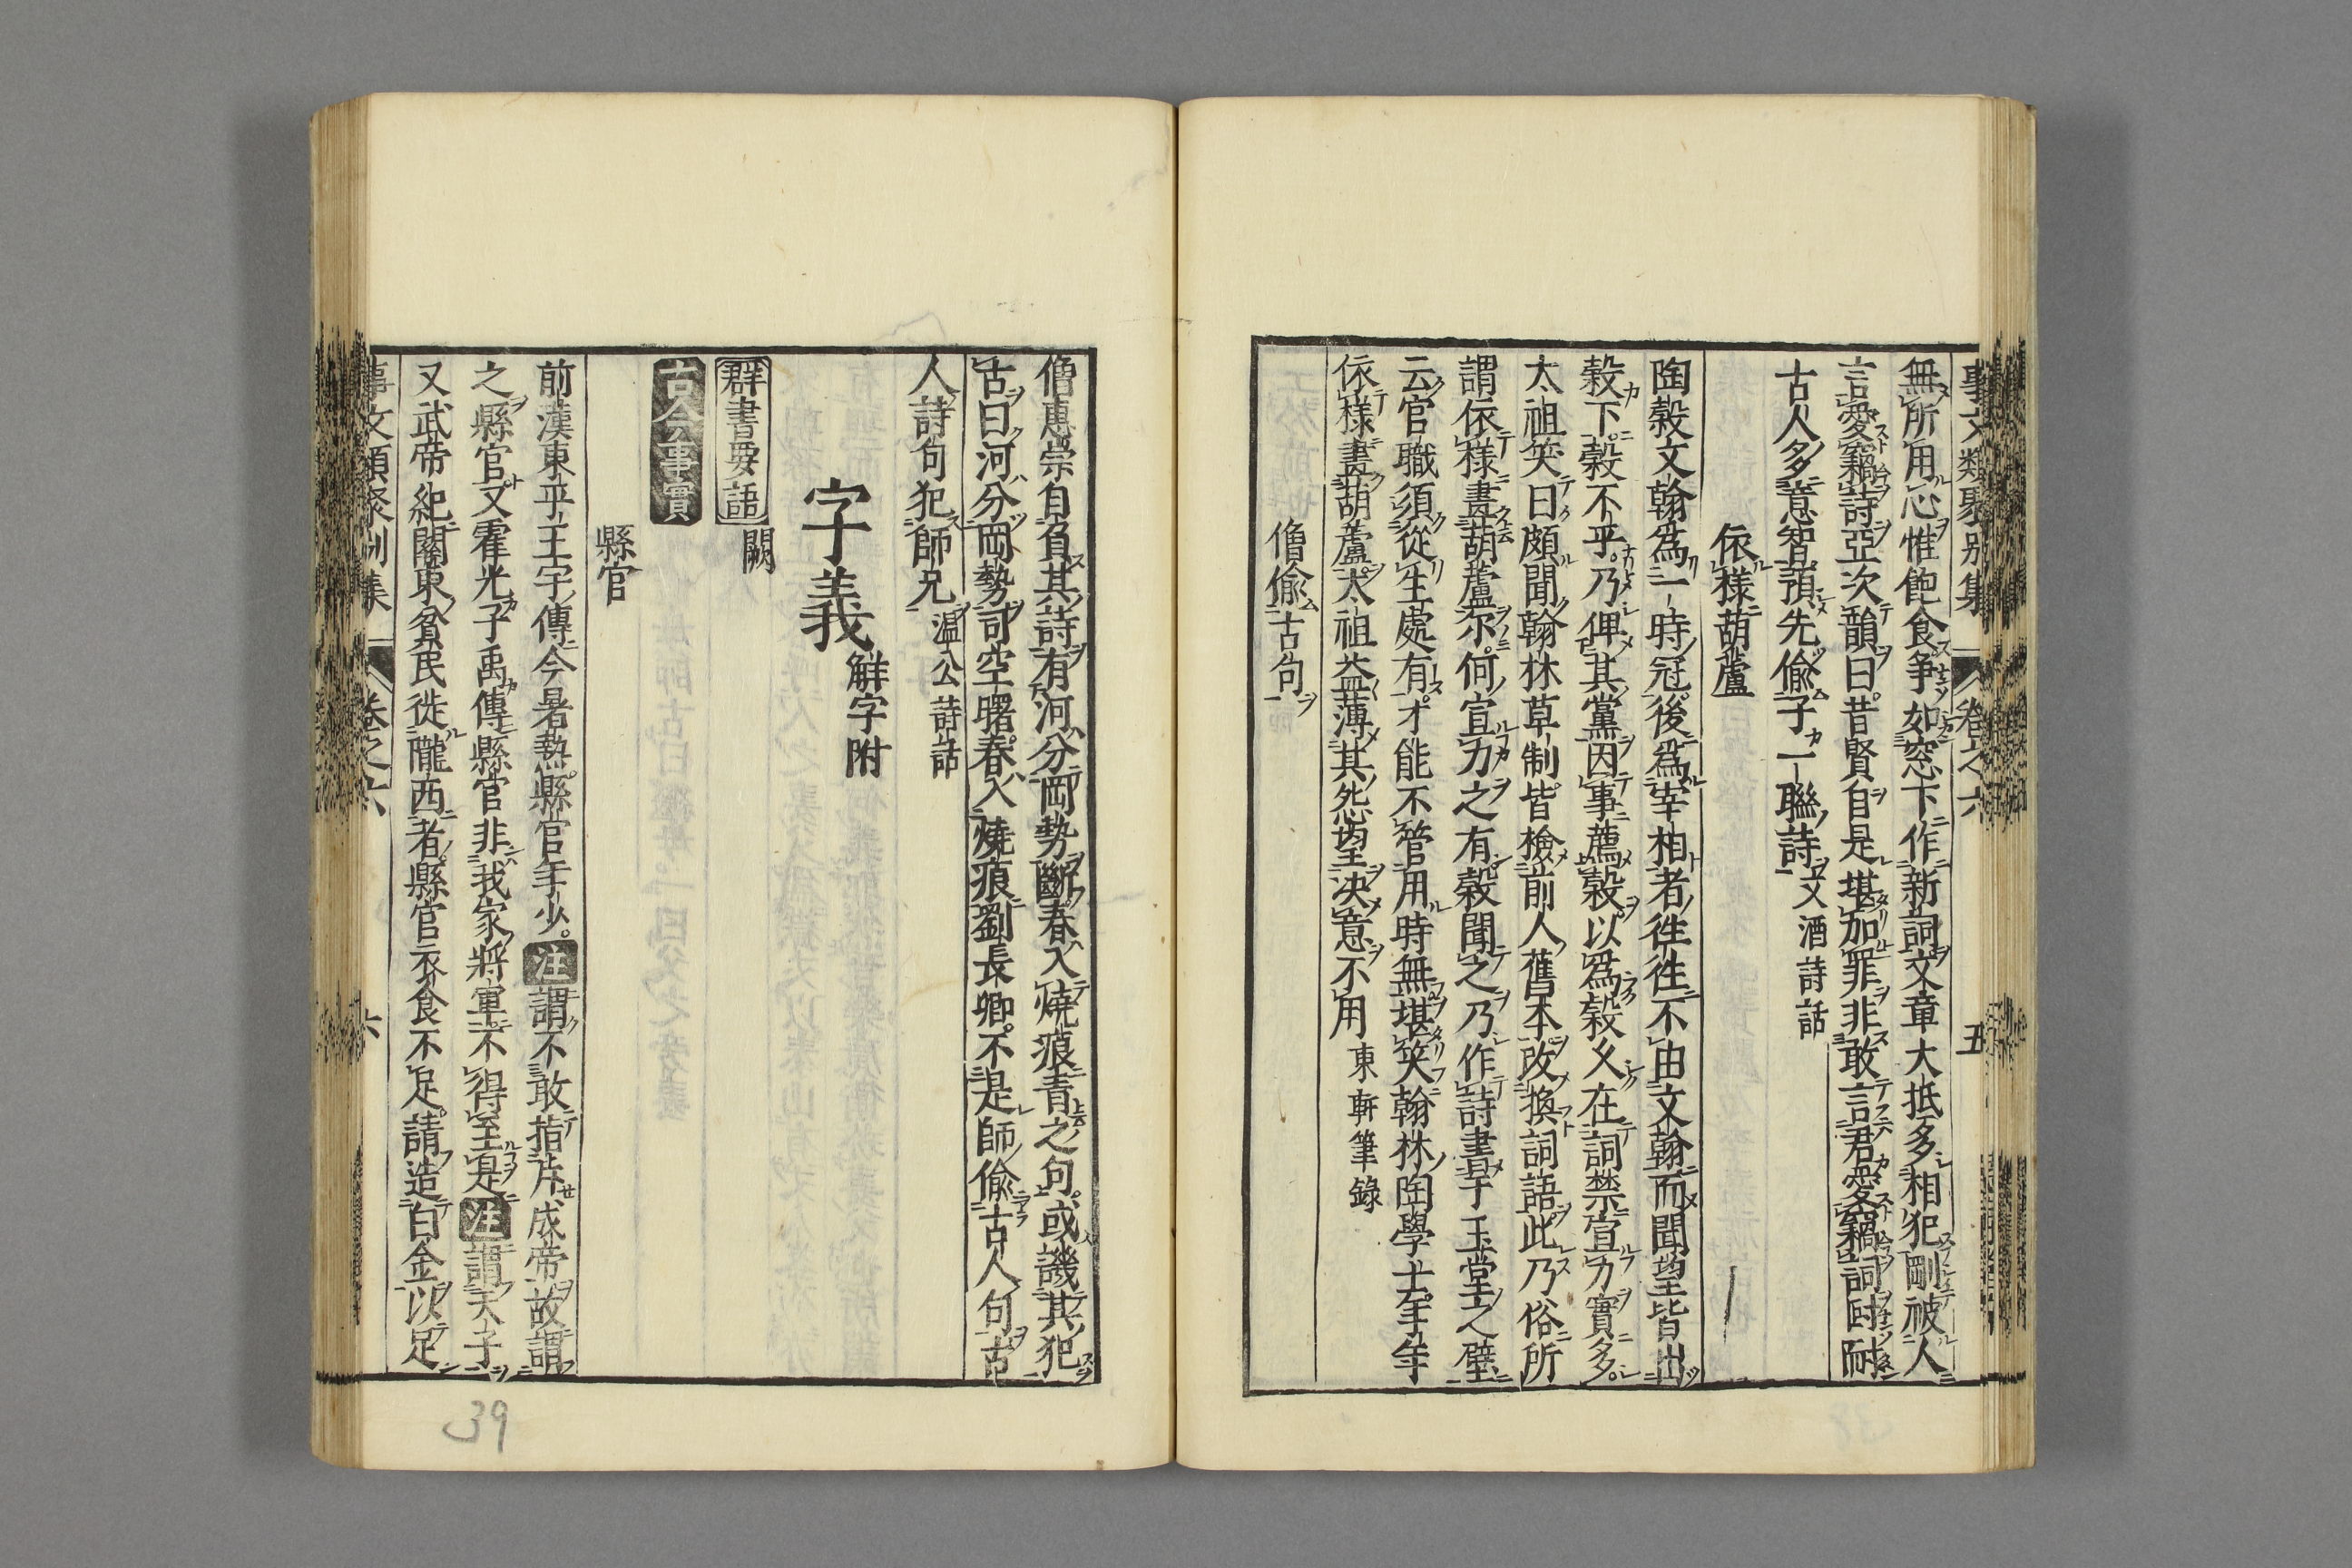 事文類聚別集 卷之六 五
無所用心惟飽食爭如窓下作新詞文章大抵多相犯剛被人
言愛竊詩亞次韻曰昔賢自是堪加罪非敢言君愛竊詞叵耐
古人多意智預先偸子一聯詩又酒詩話
依樣葫蘆
陶穀文翰爲一時冠後爲宰相者徃徃不由文翰而聞望皆出
穀下穀不平乃俾其黨因事薦穀以爲穀久在詞禁宣力實多
太祖笑曰頗聞翰林草制皆檢前人舊本改換詞語此乃俗所
謂依樣畫葫蘆尔何宣力之有穀聞之乃作詩書于玉堂之壁
云官職須從生處有才能不管用時無堪笑翰林陶學士年年
依樣畫葫蘆太祖益薄其怨望决意不用東軒筆錄
僧偸古句
僧惠崇自負其詩有河分岡勢斷春入燒痕青之句或譏其犯
古曰河分岡勢司空曙春入燒痕劉長卿不是師偸古人句古
人詩句犯師兄温公詩話
字義 觧字附
群書要語 闕
古今事實
縣官
前漢東平王宇傳今暑熱縣官年少注謂不敢指斥成帝故謂
之縣官又霍光子禹傳縣官非我家將軍不得至是注謂天子
又武帝紀關東貧民徙隴西者縣官衣食不足請造白金以足
事文類聚別集 卷之六 六
39